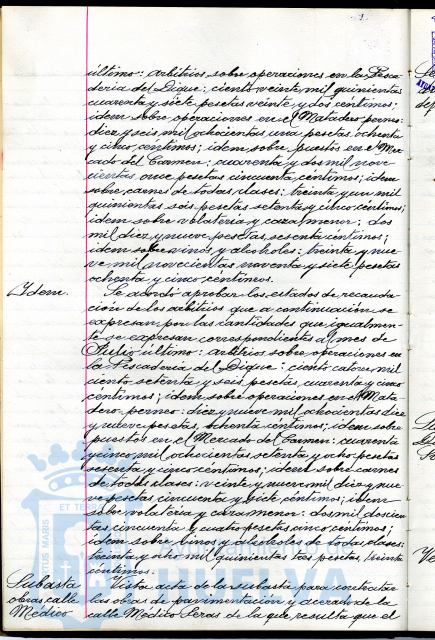 último: arbitrios sobre operaciones en la Pesca-
deria del Dique: ciento veinte mil quinientas
cuarenta y siete pesetas veinte y dos céntimos;
idem sobre operaciones en el Matadero perneo:
diez y seis mil ochocientas una pesetas ochenta
y cinco céntimos; idem sobre puestos en el Mer-
cado del Carmen: cuarenta y dos mil nove-
cientas once pesetas cincuenta céntimos; idem
sobre carnes de todas clases: treinta y un mil
quinientas seis pesetas setenta y cinco céntimos;
idem sobre volateria y caza menor: dos
mil diez y nueve pesetas sesenta céntimos;
idem sobre vinos y alcoholes: treinta y nue-
ve mil novecientas noventa y siete pesetas
ochenta y cinco céntimos.
Idem.
Se acordó aprobar los estados de recauda-
ción de los arbitrios que a continuación se
expresan por las cantidades que igualmen-
te se expresan correspondientes al mes de
Julio último: arbitrios sobre operaciones en
la Pescaderia del Dique: ciento catorce mil
ciento setenta y seis pesetas cuarenta y cinco
céntimos; idem sobre operaciones en el Mata-
dero perneo: diez y nueve mil ochocientas diez
y nueve pesetas, ochenta céntimos; idem sobre
puestos en el Mercado del Carmen: cuarenta
y cinco mil ochocientas setenta y ocho pesetas
sesenta y cinco céntimos; idem sobre carnes
de todas clases: veinte y nueve mil diez y nue-
ve pesetas cincuenta y siete céntimos; idem
sobre volateria y caza menor: dos mil doscien-
tas cincuenta y cuatro pesetas cinco céntimos;
idem sobre vinos y alcoholes de todas clases:
treinta y seis mil quinientas tres pesetas, treinta
céntimos.
Subasta
obras calle
Médico
Vista acta de la subasta para contratar
las obras de pavimentación y acerado de la
calle Médico Seras de la que resulta que el
Ayuntamiento de
HUELVA